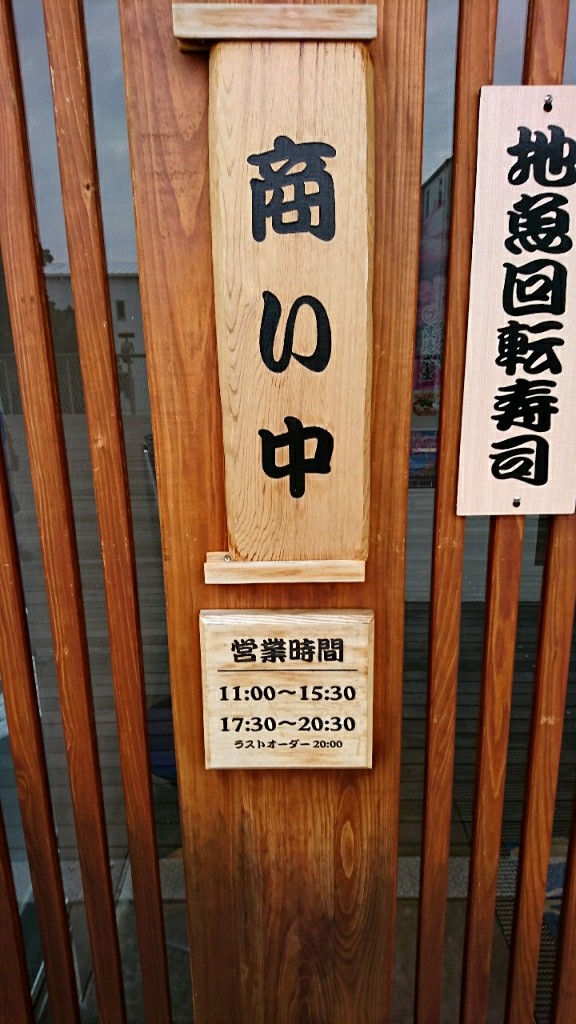 商い中
地魚回転寿司
営業時間
11:00〜15:30
17:30〜20:30
ラストオーダー 20:00